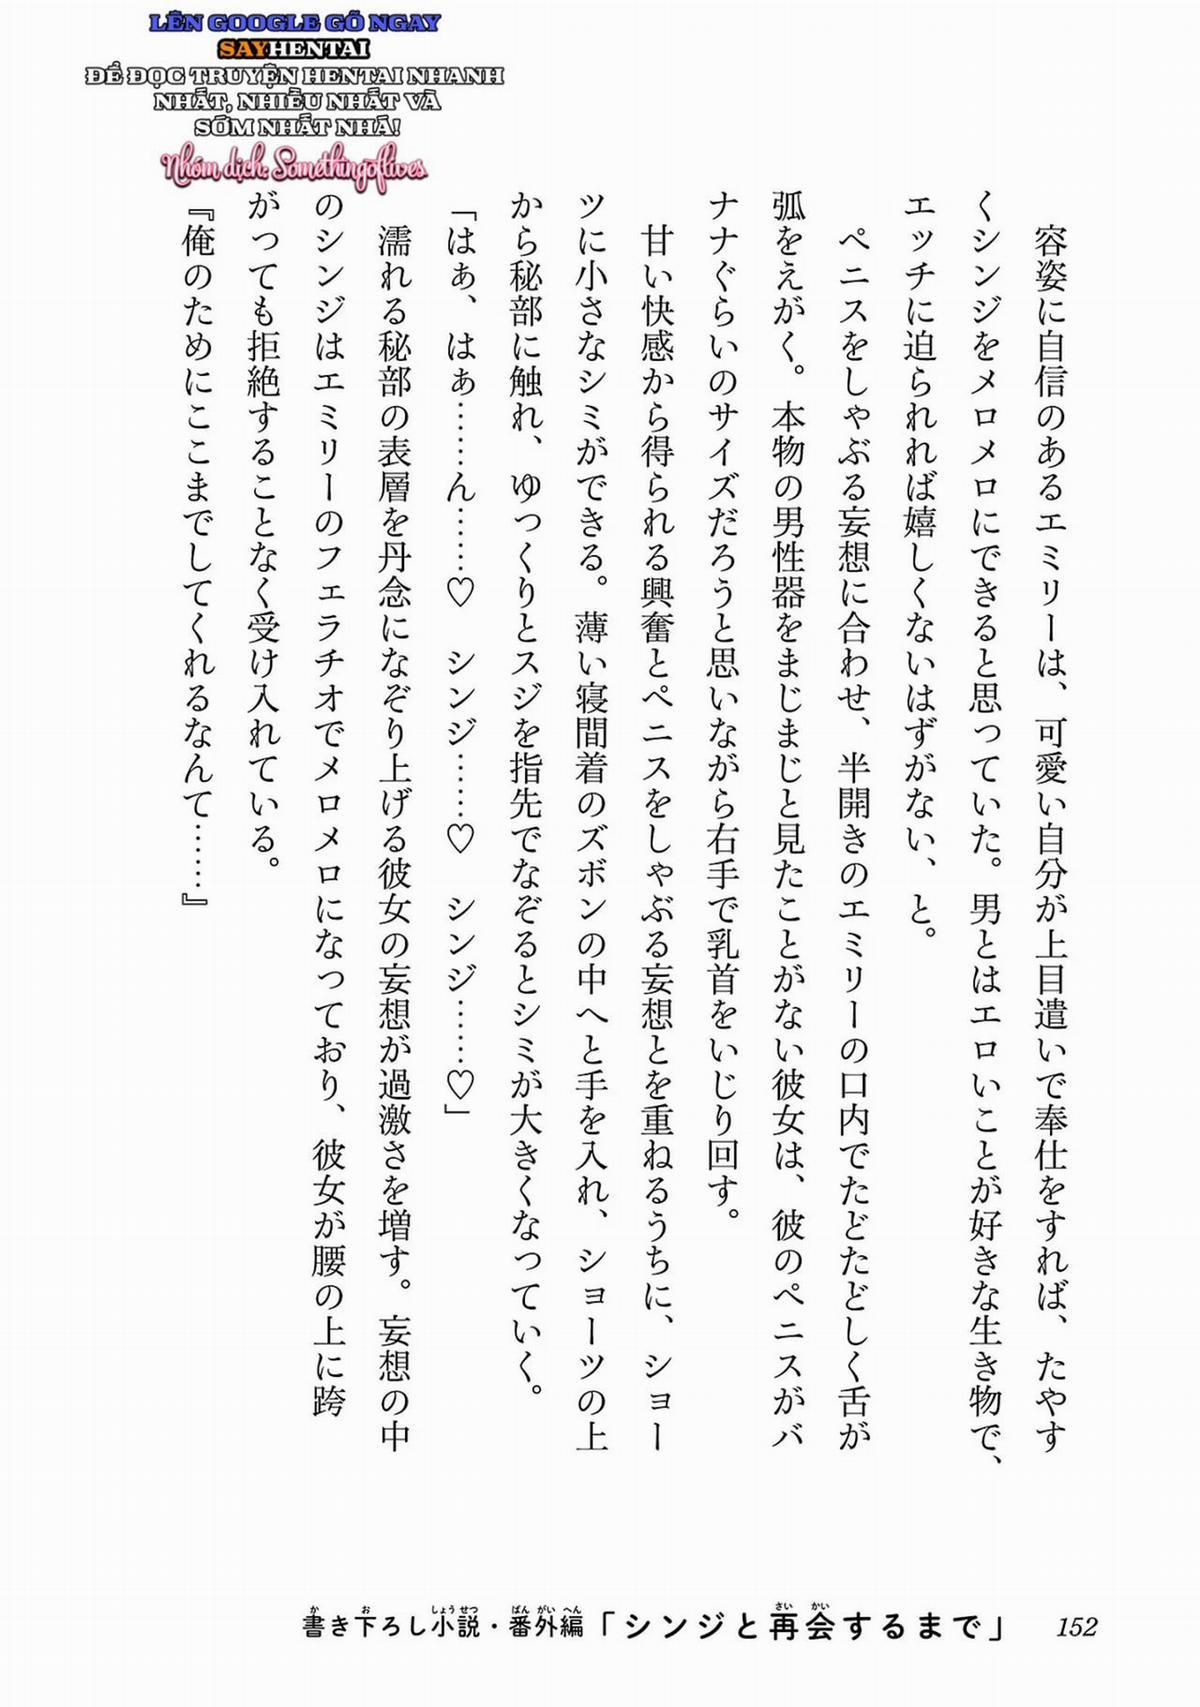 LÊN GOOGLE GÕ NGAY
SAYHENTAI
ĐỂ ĐỌC TRUYỆN HENTAI NHANH
NHẤT, NHIỀU NHẤT VÀ
SỚM NHẤT NHÁ!
Nhóm dịch: Somethingoflives
容姿に自信のあるエミリーは、可愛い自分が上目遣いで奉仕をすれば、たやす
くシンジをメロメロにできると思っていた。男とはエロいことが好きな生き物で、
エッチに迫られれば嬉しくないはずがない、と。
ペニスをしゃぶる妄想に合わせ、半開きのエミリーの口内でたどたどしく舌が
弧をえがく。本物の男性器をまじまじと見たことがない彼女は、彼のペニスがバ
ナナぐらいのサイズだろうと思いながら右手で乳首をいじり回す。
甘い快感から得られる興奮とペニスをしゃぶる妄想とを重ねるうちに、ショー
ツに小さなシミができる。薄い寝間着のズボンの中へと手を入れ、ショーツの上
から秘部に触れ、ゆっくりとスジを指先でなぞるとシミが大きくなっていく。
「はぁ、はぁ……ん……♡　シンジ……♡　シンジ……♡」
濡れる秘部の表層を丹念になぞり上げる彼女の妄想が過激さを増す。妄想の中
のシンジはエミリーのフェラチオでメロメロになっており、彼女が腰の上に跨
がっても拒絶することなく受け入れている。
『俺のためにここまでしてくれるなんて……』
書き下ろし小説・番外編「シンジと再会するまで」 152